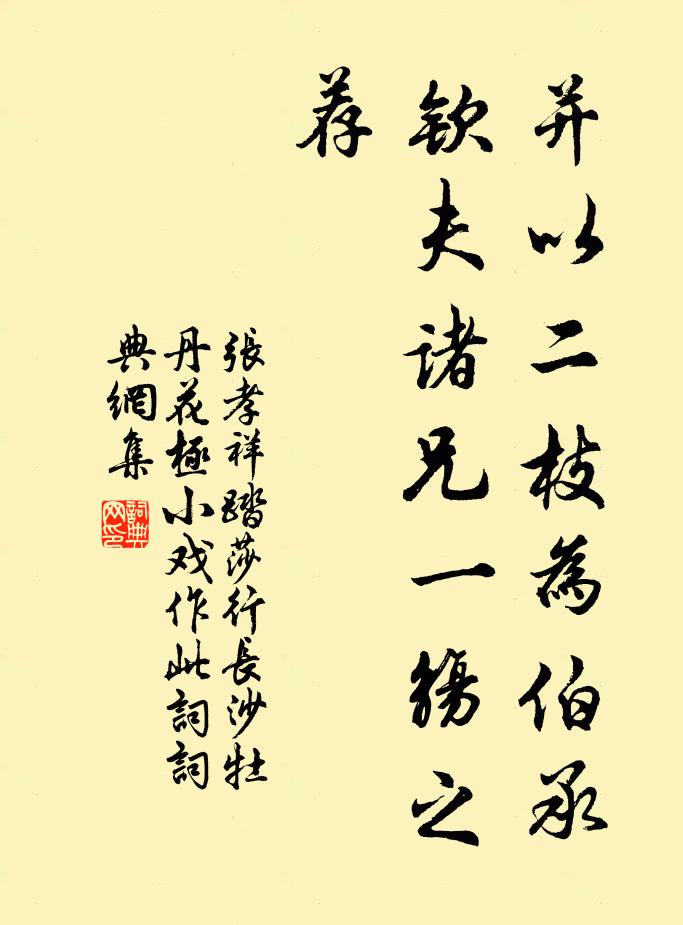 并以二枝为伯承
钦夫诸兄一觞之
荐
張孝祥踏莎行長沙牡
丹花極小戏作此詞詞
典網集
詞典网印